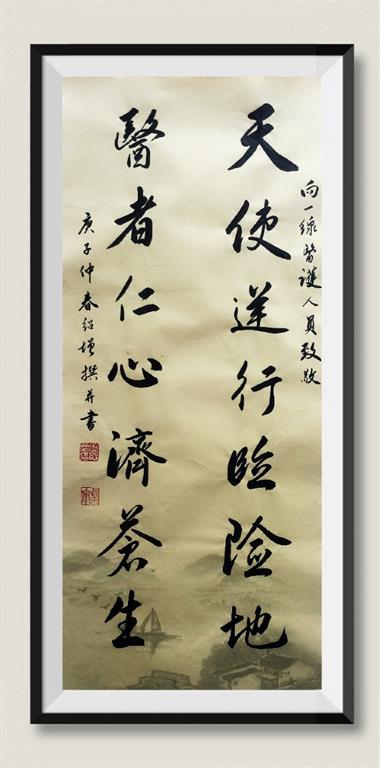 向一線醫護人員致敬
天使逆行临险地
醫者仁心濟蒼生
庚子仲春绍增撰并書